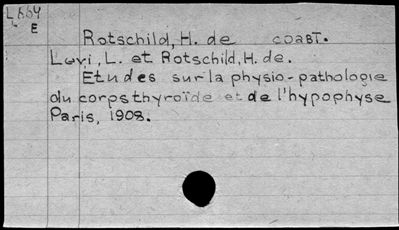 L664
E
Rotschild, H. de соавт.
Levi, L. et Rotschild, H. de.
Etudes sur la physio-pathologie
du corps thyroïde et de l'hypophyse
Paris, 1908.